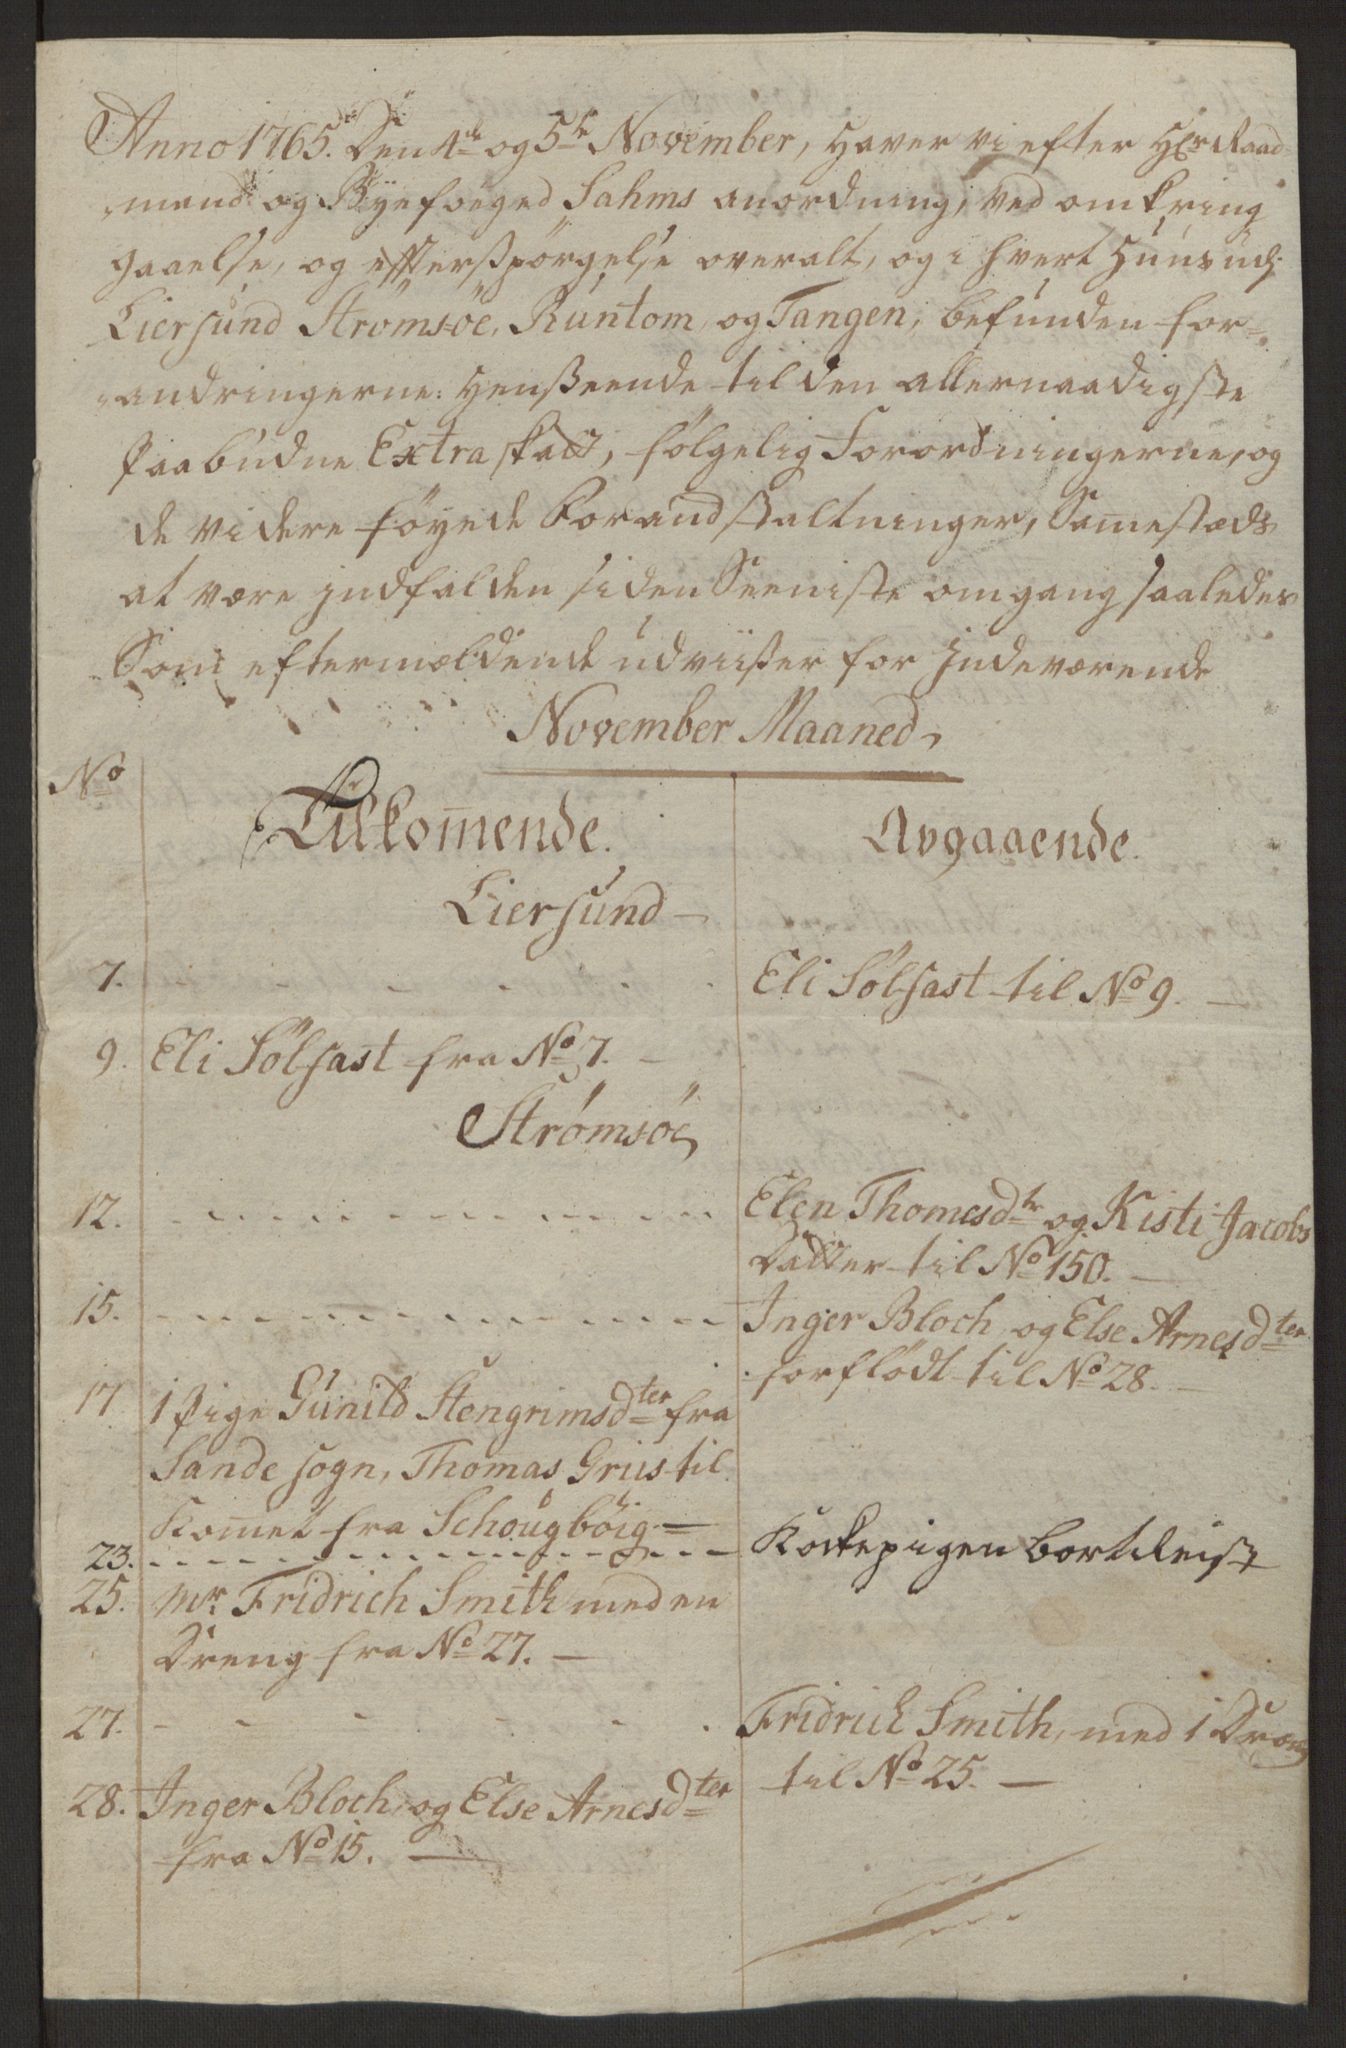 Anno 1765. Den 4de og 5te November, haver vi efter Hr Raad-
mand og Byefoeged Sahms anordning, ved omkring
gaaelse, og efterspörgelse overalt, og i hvert Huus udj
Liersund Strömsöe, Runtom, og Tangen, befunden for-
andringerne: henseende til den allernaadigste
paabudne Extra skatt, fölgelig Forordningerne, og
de videre föyede Foranstaltninger, Samestæds
at være indfalden siden Seeniste omgang saaledes
Som eftermeldende udviiser for Indeværende
November Maaned
No
Tilkom̄ende.
Avgaaende.
Liersund
7. - - - - - Eli Sölfast til No 9.
9. Eli Sölfast fra No 7.
Strömsöe
12. - - - - - Elen Thomesdtr og Kisti Jacobs
Datter til No 150.
15. - - - - - Inger Bloch, og Else Arnesdter
forflödt til No 28.
17 1 Pige Gunild Stengrimsdter fra
Sande sogn, Thomas Griis til
Kom̄et fra Schougböig
23. - - - - - Kokkepigen bortreist
25. Mr Fridrich Smith med en
Dreng fra No 27.
27. - - - - - Fridrich Smith, med 1 Dreng
til No 25.
28. Inger Bloch, og Else Arnesdter
fra No 15.